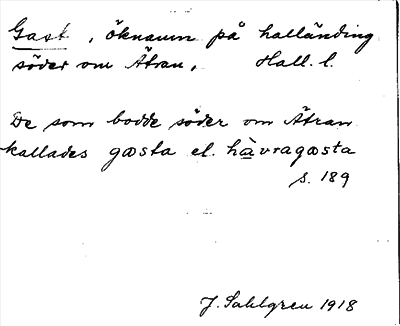 Gast, öknamn på hallänning
söder om Ätran, Hall. l.
De som bodde söder om Ätran
kallades gæsta el. hàvragæsta
s. 189
J. Sahlgren 1918